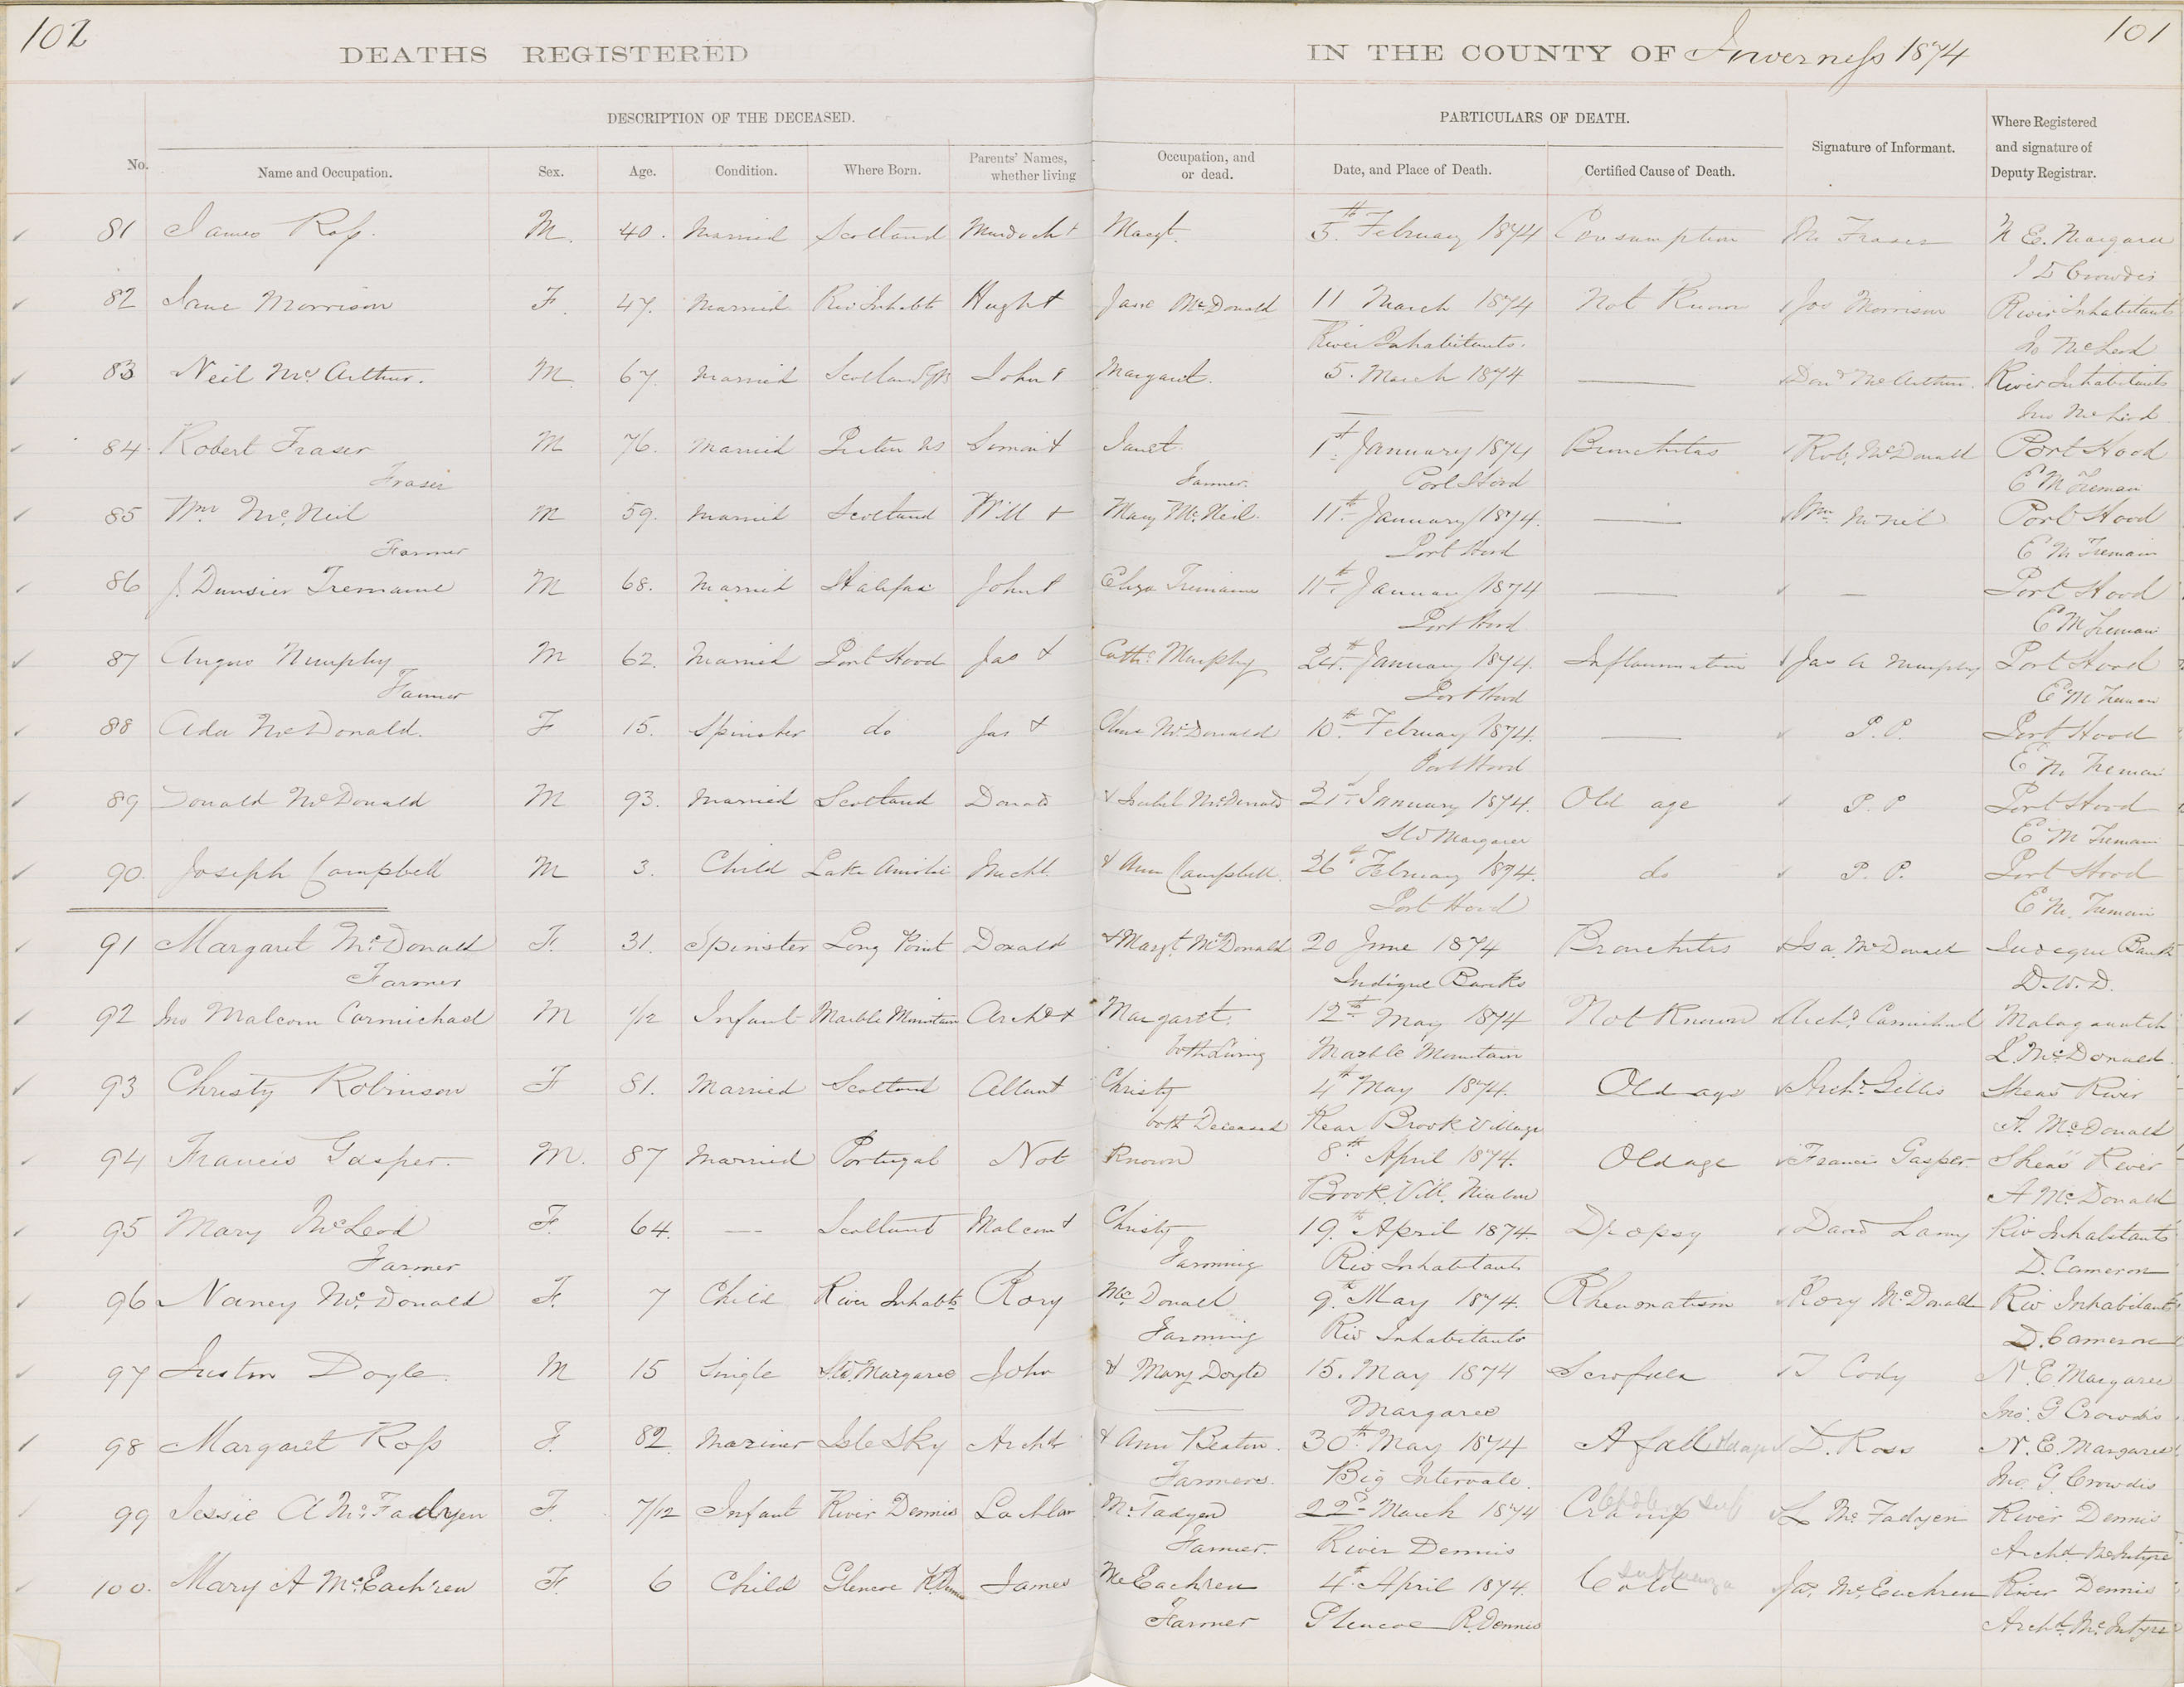 102
101
DEATHS REGISTERED IN THE COUNTY OF Inverness 1874
DESCRIPTION OF THE DECEASED. PARTICULARS OF DEATH.
No. Name and Occupation. Sex. Age. Condition. Where Born. Parents' Names, whether living Occupation, and or dead. Date, and Place of Death. Certified Cause of Death. Signature of Informant. Where Registered and signature of Deputy Registrar.
81 James Ross. M. 40. Married Scotland Murdoch + Margt. 5th February 1874 Consumption Fraser N E. Margaree
Crowdis
82 Jane Morrison F. 47. Married Riv Inhabts Hugh + Jane McDonald 11 March 1874 Not Known Jos Morrison River Inhabitants
River Inhabitants. Jno McLeod
83 Neil McArthur. M. 67. Married Scotland John + Margaret. 5. March 1874 — Dond McArthur. River Inhabitants
Jno McLeod
84. Robert Fraser M 76. Married Picton NS Simon + Janet. 1st January 1874 Bronchitas Rob. McDonald Port Hood
Fraser Farmer. Port Hood E M Tremain
85 Wm McNeil M 59. Married Scotland Will + Mary McNeil. 11th January 1874. — Wm McNeil Port Hood
Farmer Port Hood E M Tremain
86 J. Dunsier Tremaine M 68. Married Halifax John + Eliza Tremaine 11th January 1874 — — Port Hood
Port Hood E M Tremain
87 Angus Murphy M 62. Married Port Hood Jas + Cathe Murphy 24th January 1874. Inflammation Jas A Murphy Port Hood
Farmer Port Hood E M Tremain
88 Ada McDonald. F 15. Spinster do Jas + McDonald 10th February 1874. — P. P. Port Hood
Port Hood E M Tremain
89 Donald McDonald M 93. Married Scotland Donald + Isabel McDonald 21st January 1874. Old age P. P Port Hood
SW Margaree E M Tremain
90. Joseph Campbell M 3. Child Lake Ainslie Michl. + Ann Campbell. 26th February 1874. do P. P. Port Hood
Port Hood E M. Tremain
91 Margaret McDonald F. 31. Spinster Long Point Donald + Margt. McDonald 20 June 1874 Bronchitis Isa McDonald Judique Bank
Farmer Judique Banks D. W. D.
92 Jno Malcom Carmichael M 1/12 Infant Marble Mountain Archd + Margaret. 12th May 1874 Not Known Archd Carmichael Malagawatch
both Living Marble Mountain L. McDonald.
93 Christy Robinson F 81. Married Scotland Allan + Christy 4th May 1874. Old age Archd Gillis Sheas River
both Deceased Rear Brook Village A. McDonald
94 Francis Gasper. M. 87 Married Portugal Not Known 8th April 1874. Old age Francis Gasper. Sheas River
Brook Vill. A McDonald
95 Mary McLeod F. 64. — Scotland Malcom + Christy 19th April 1874. Dropsy David Lamy Riv Inhabitants
Farmer Farming Riv Inhabitants D. Cameron
96 Nancy McDonald F. 7 Child River Inhabts Rory McDonald 9th May 1874. Rheumatism Rory McDonald Riv Inhabitants
Farming Riv Inhabitants D. Cameron
97 Justin Doyle M 15 Single S.W. Margaree John + Mary Doyle 15. May 1874 Scrofula T Cody N. E. Margaree
Margaree Jno. G Crowdis
98 Margaret Ross F. 82. Mariner Isle Sky Archd + Ann Beaton. 30th May 1874 A fall D. Ross N. E. Margaree
Farmers. Big Intervale. Jno. G. Crowdis
99 Jessie A McFadyen F. 7/12 Infant River Dennis Lachlan McFadyen 22d March 1874 Cramp L McFadyen River Dennis
Farmer. River Dennis Archd. McIntyre
100. Mary A McEach'ren F. 6 Child Glencoe R. Dennis James McEachren 4th April 1874. Cold Influenza Jas. McEachren River Dennis
Farmer Glencoe R. Dennis Archd. McIntyre